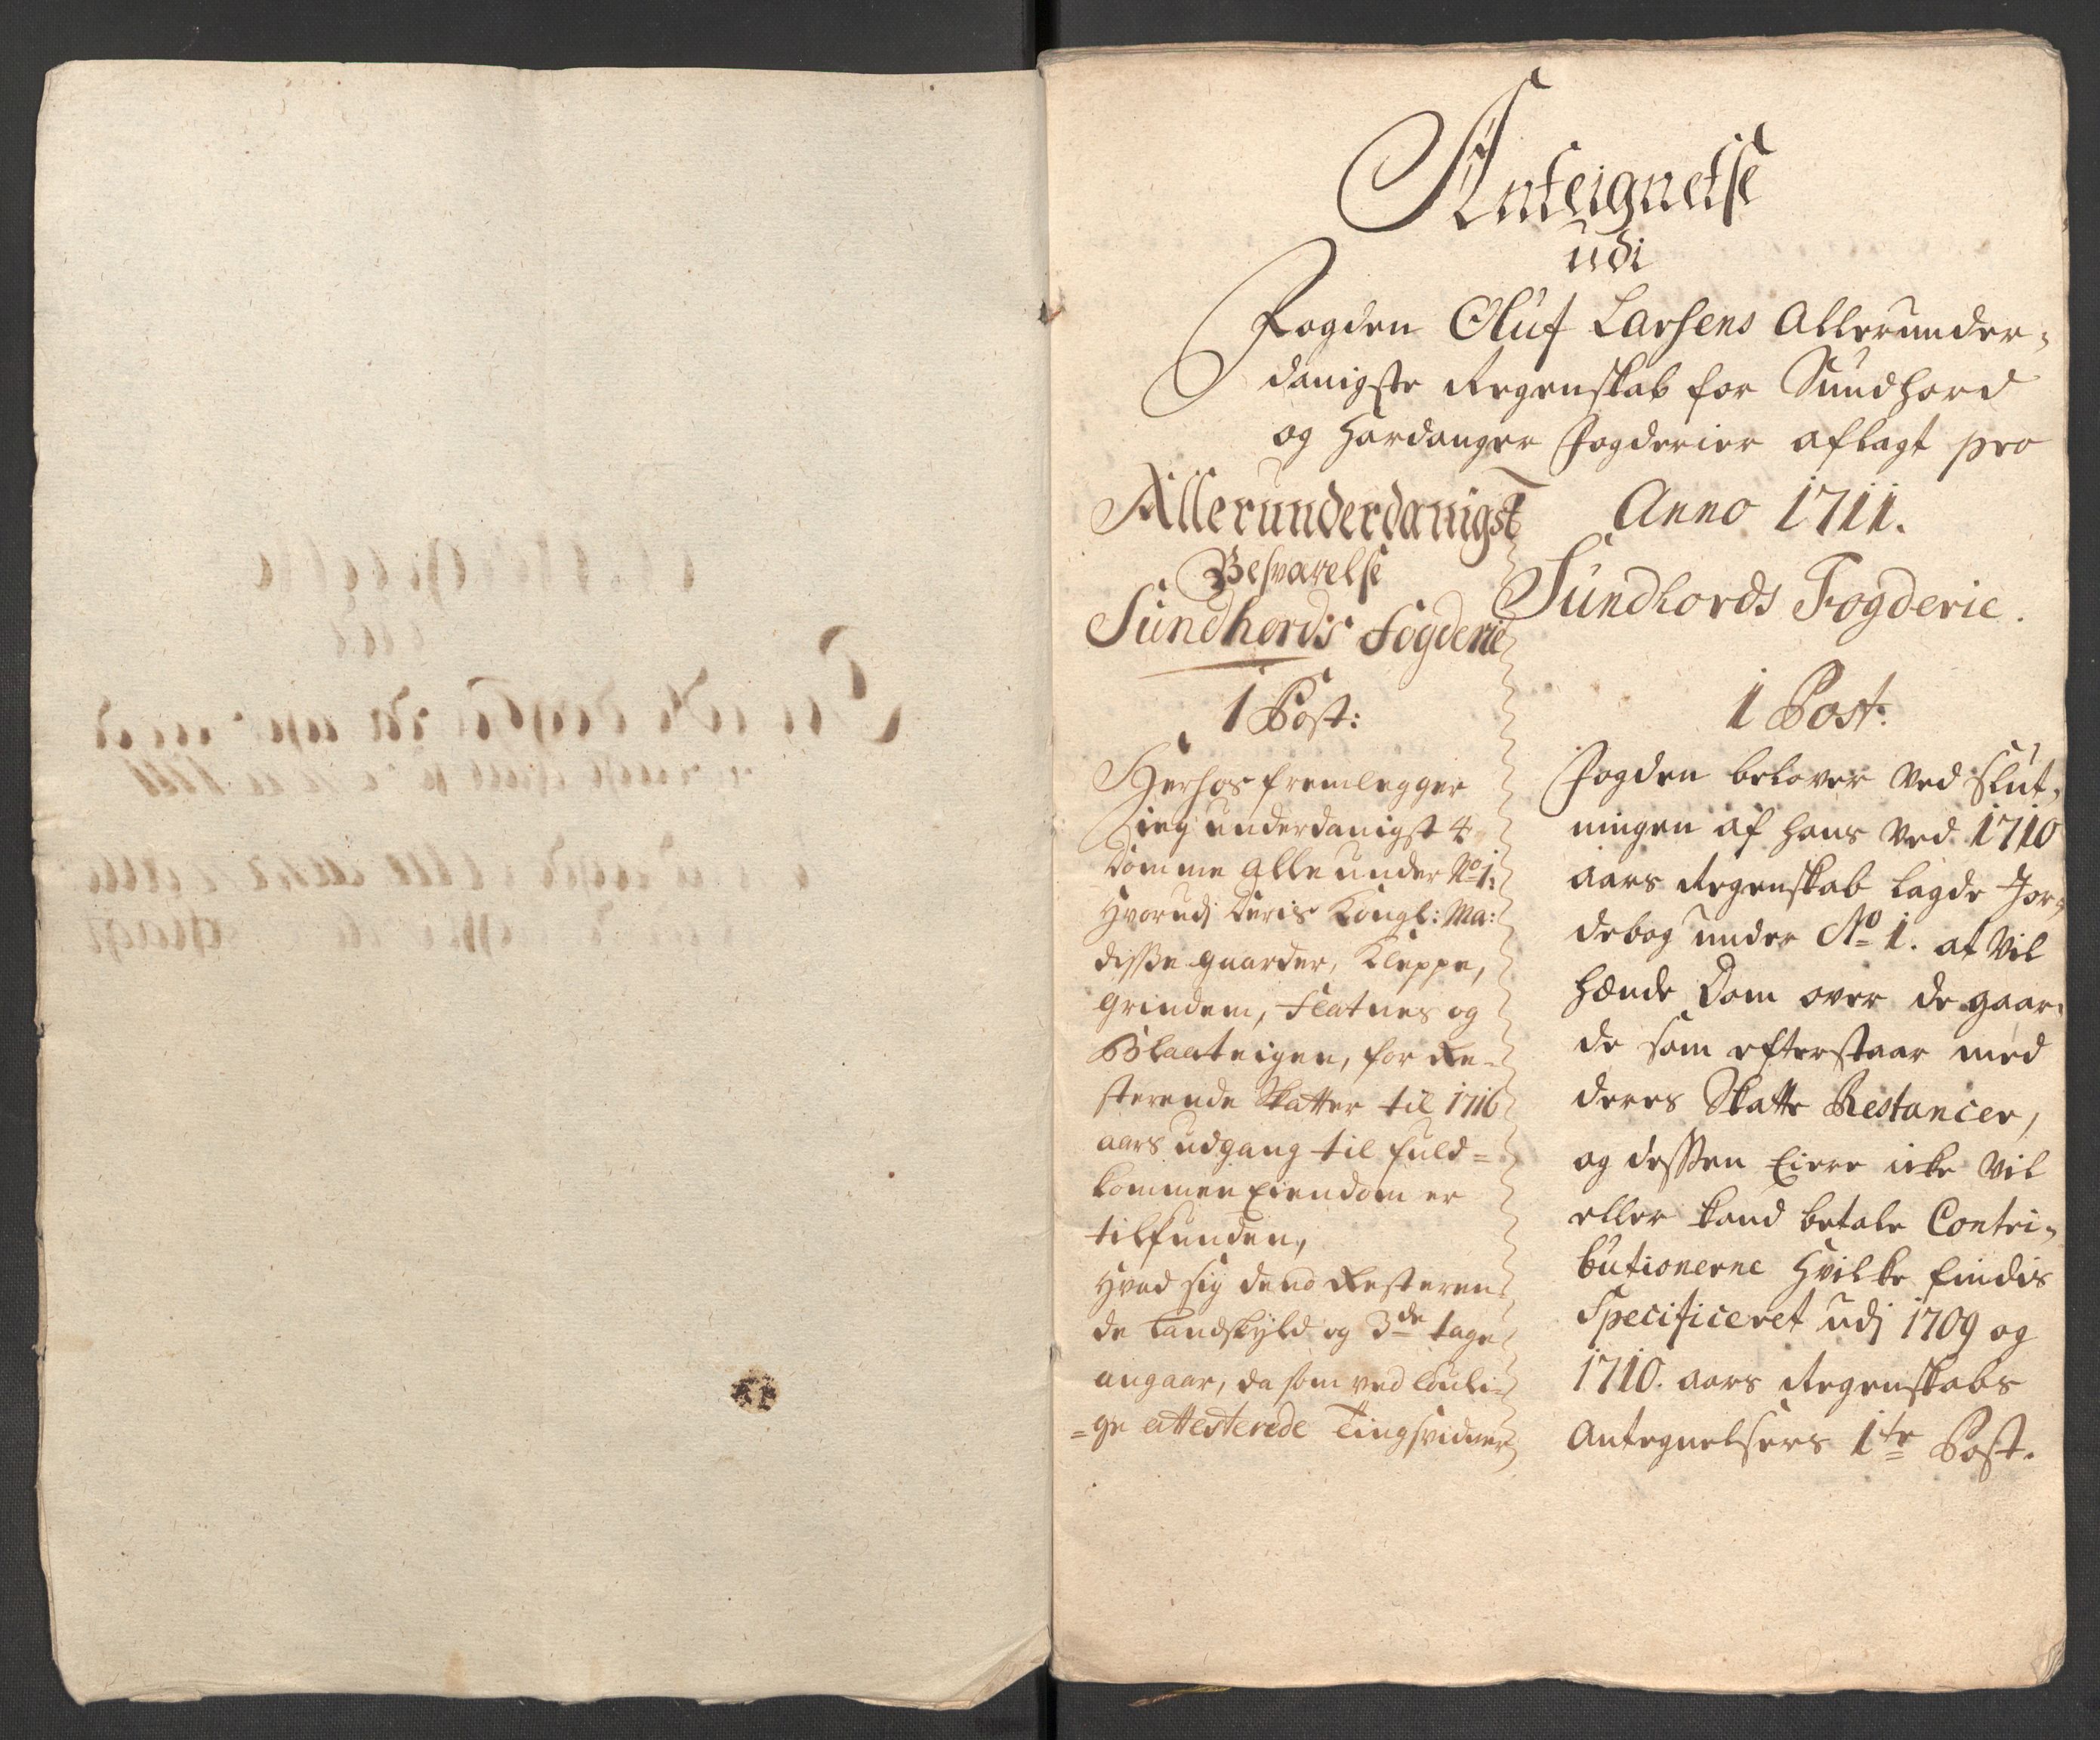 Anteignelse
udi
Fogden Oluf Larsens Allerunder,
danigste Regenskab for Sundhord
og Hardanger Fogderier aflagt pro
Anno 1711.
Sundhords Fogderie.
1 Post.
Fogden belover ved slut,
ningen af hans ved 1710
aars Regenskab lagde Jor,
debog under No 1. at vil
hænde Dom over de gaar,
de som efterstaar med
deres Skatte Restancer,
og dessen Eiere icke vil
eller kand betale Contri,
butionerne hvilke findis
Specificeret udj 1709 og
1710. aars Regenskabs
Antegnelsers 1te Post.
Allerunderdanigst
Besvarelse
Sundhords Fogderie
1 Post:
Herhos fremlegger
ieg underdanigst 4
Domme alle under No 1:
hvorudj Deris Kongl: Ma:
disse gaarder, Kleppe,
Grindem, Flatnes og
Blaateigen, for Re-
sterende Skatter til 1716
aars udgang til fuld=
kommen Eiendom er
tilfunden,
Hvad sig dend Resteren-
de Landskyld og 3de tage
angaar, da som ved louli-
=ge attesterede Tingsvidner